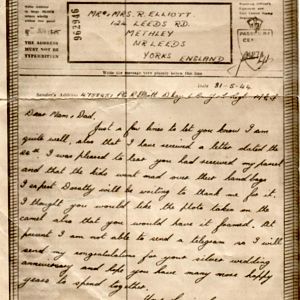 TO:-
THE ADDRESS
MUST NOT BE
TYPEWRITTEN
962946
MR & MRS. R. ELLIOTT.
124 LEEDS RD.
METHLEY
NR LEEDS
YORKS ENGLAND
Write the message very plainly below this line
Sender's Address
Date 31-5-44
Dear Mam & Dad,
Just a few lines to let you know I am
quite well, also that I have received a letter dated the
I was pleased to hear you had received my parcel
and that the kids went mad over their hand bags
I expect Dorothy will be writing to thank me for it.
I thought you would like the photo taken on the
camel also that you would have it framed. At
present I am not able to send a telegram so I will
send my congratulations for your silver wedding
anniversary and hope you have many more happy
years to spend together.